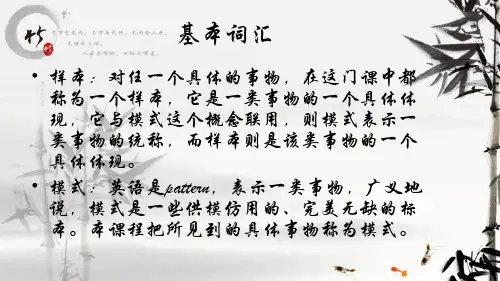 竹
竹
基本词汇
• 样本：对任一个具体的事物，在这门课中都
称为一个样本，它是一类事物的一个具体体
现，它与模式这个概念联用，则模式表示一
类事物的统称，而样本则是该类事物的一个
具体体现。
• 模式：英语是pattern，表示一类事物，广义地
说，模式是一些供模仿用的、完美无缺的标
本。本课程把所见到的具体事物称为模式。